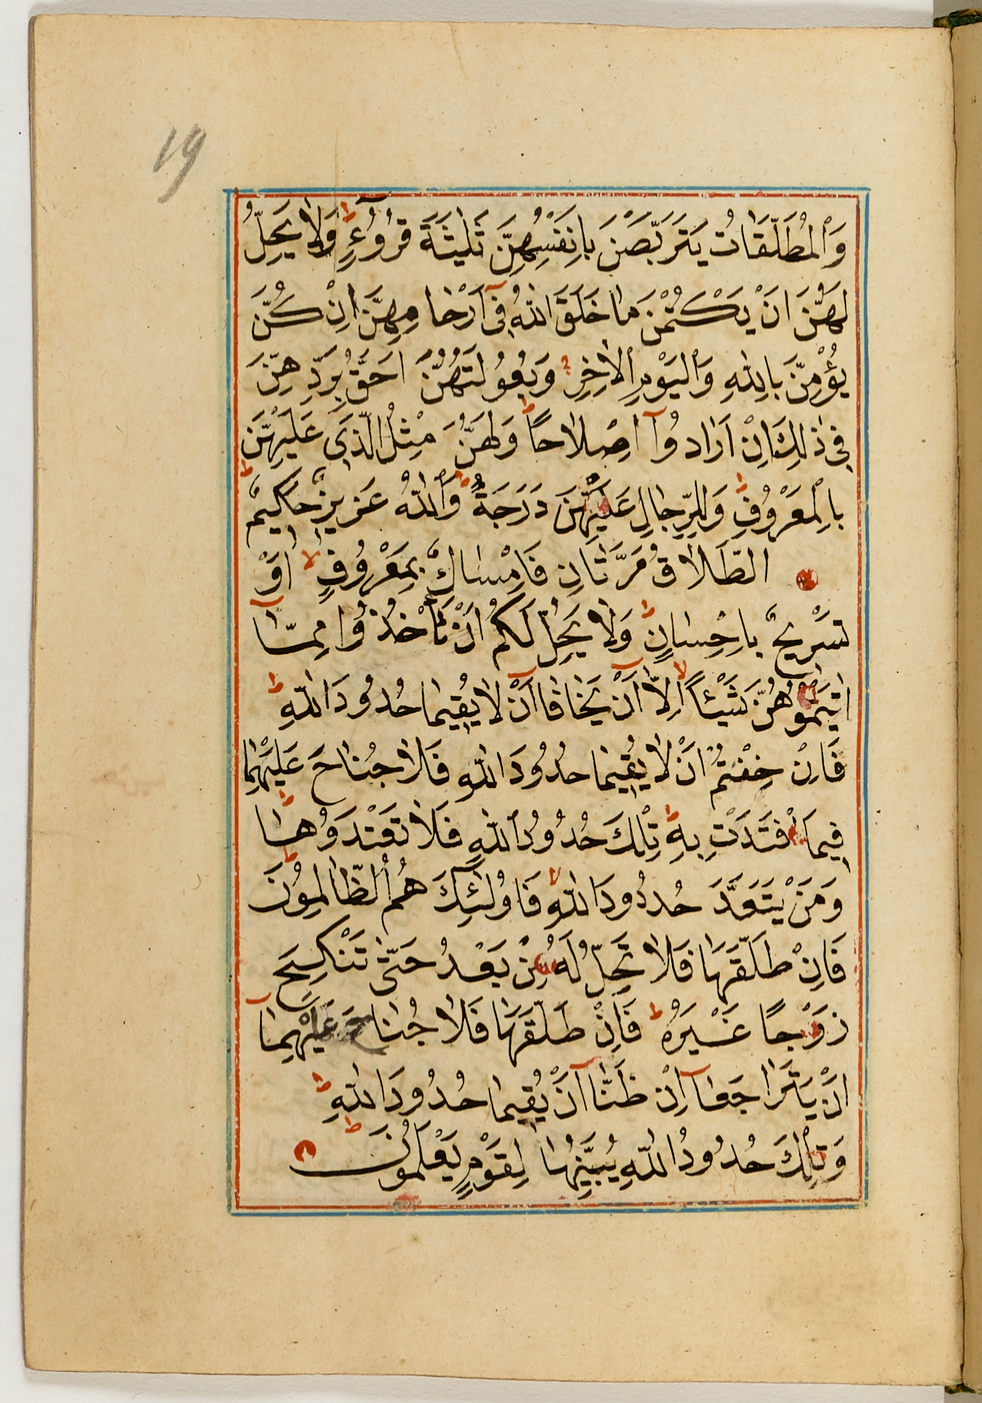 19
وَالْمُطَلَّقَاتُ يَتَرَبَّصْنَ بِاَنْفُسِهِنَّ ثَلٰثَةَ قُرُوءٍ ط وَلَا يَحِلُّ
لَهُنَّ اَنْ يَكْتُمْنَ مَا خَلَقَ اللّٰهُ فِىٓ اَرْحَامِهِنَّ اِنْ كُنَّ
يُؤْمِنَّ بِاللّٰهِ وَالْيَوْمِ الْاٰخِرِ وَبُعُولَتُهُنَّ اَحَقُّ بِرَدِّهِنَّ
فِى ذٰلِكَ اِنْ اَرَادُوٓا اِصْلَاحاً ط وَلَهُنَّ مِثْلُ الَّذِى عَلَيْهِنَّ
بِالْمَعْرُوفِ ط وَلِلرِّجَالِ عَلَيْهِنَّ دَرَجَةٌ ط وَاللّٰهُ عَزِيزٌ حَكِيمٌ
الطَّلَاقُ مَرَّتَانِ فَاِمْسَاكٌ بِمَعْرُوفٍ لا اَوْ
تَسْرِيحٌ بِاِحْسَانٍ ط وَلَا يَحِلُّ لَكُمْ اَنْ تَأْخُذُوا مِمَّآ
اٰتَيْتُمُوهُنَّ شَيْئاً اِلَّآ اَنْ يَخَافَآ اَنْ لَا يُقِيمَا حُدُودَ اللّٰهِ ط
فَاِنْ خِفْتُمْ اَنْ لَا يُقِيمَا حُدُودَ اللّٰهِ فَلَا جُنَاحَ عَلَيْهِمَا
فِيمَا افْتَدَتْ بِهِ ط تِلْكَ حُدُودُ اللّٰهِ فَلَا تَعْتَدُوهَا ط
وَمَنْ يَتَعَدَّ حُدُودَ اللّٰهِ فَاُولٰٓئِكَ هُمُ الظَّالِمُونَ
فَاِنْ طَلَّقَهَا فَلَا تَحِلُّ لَهُ مِنْ بَعْدُ حَتّٰى تَنْكِحَ
زَوْجاً غَيْرَهُ ط فَاِنْ طَلَّقَهَا فَلَا جُنَاحَ عَلَيْهِمَآ
اَنْ يَتَرَاجَعَآ اِنْ ظَنَّآ اَنْ يُقِيمَا حُدُودَ اللّٰهِ ط
وَتِلْكَ حُدُودُ اللّٰهِ يُبَيِّنُهَا لِقَوْمٍ يَعْلَمُونَ